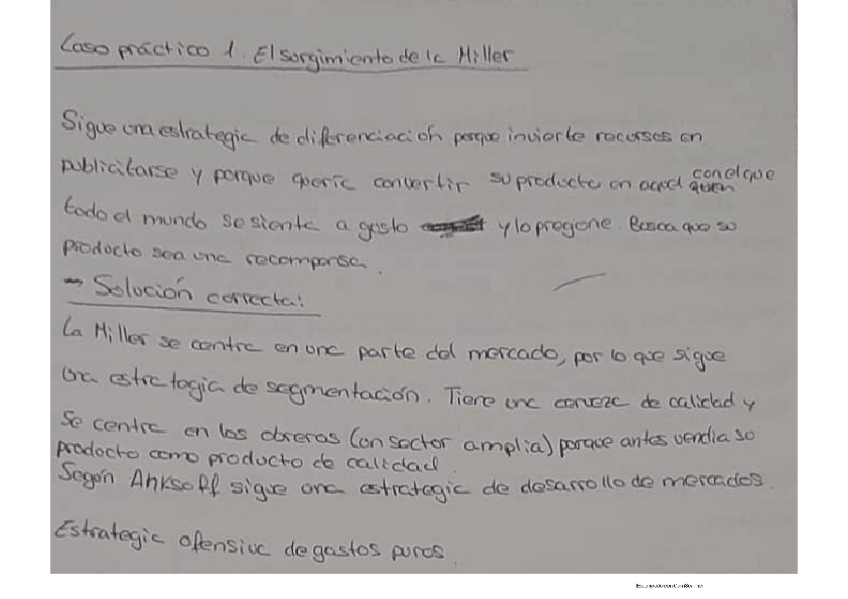 Caso práctico 1. El sorgimiento de la Miller
Sigue una estrategia de diferenciación porque invierte recursos en
publicitarse y porque quería convertir su producto en aquel con el que
todo el mundo se siente a gusto y lo pregone. Busca que su
producto sea una recompensa.
→ Solución correcta:
La Miller se centra en una parte del mercado, por lo que sigue
una estrategia de segmentación. Tiene una cerveza de calidad y
se centra en los obreros (un sector amplia) porque antes vendía su
producto como producto de calidad.
Según Anksoff sigue una estrategia de desarrollo de mercados.
Estrategia ofensiva de gastos puros.